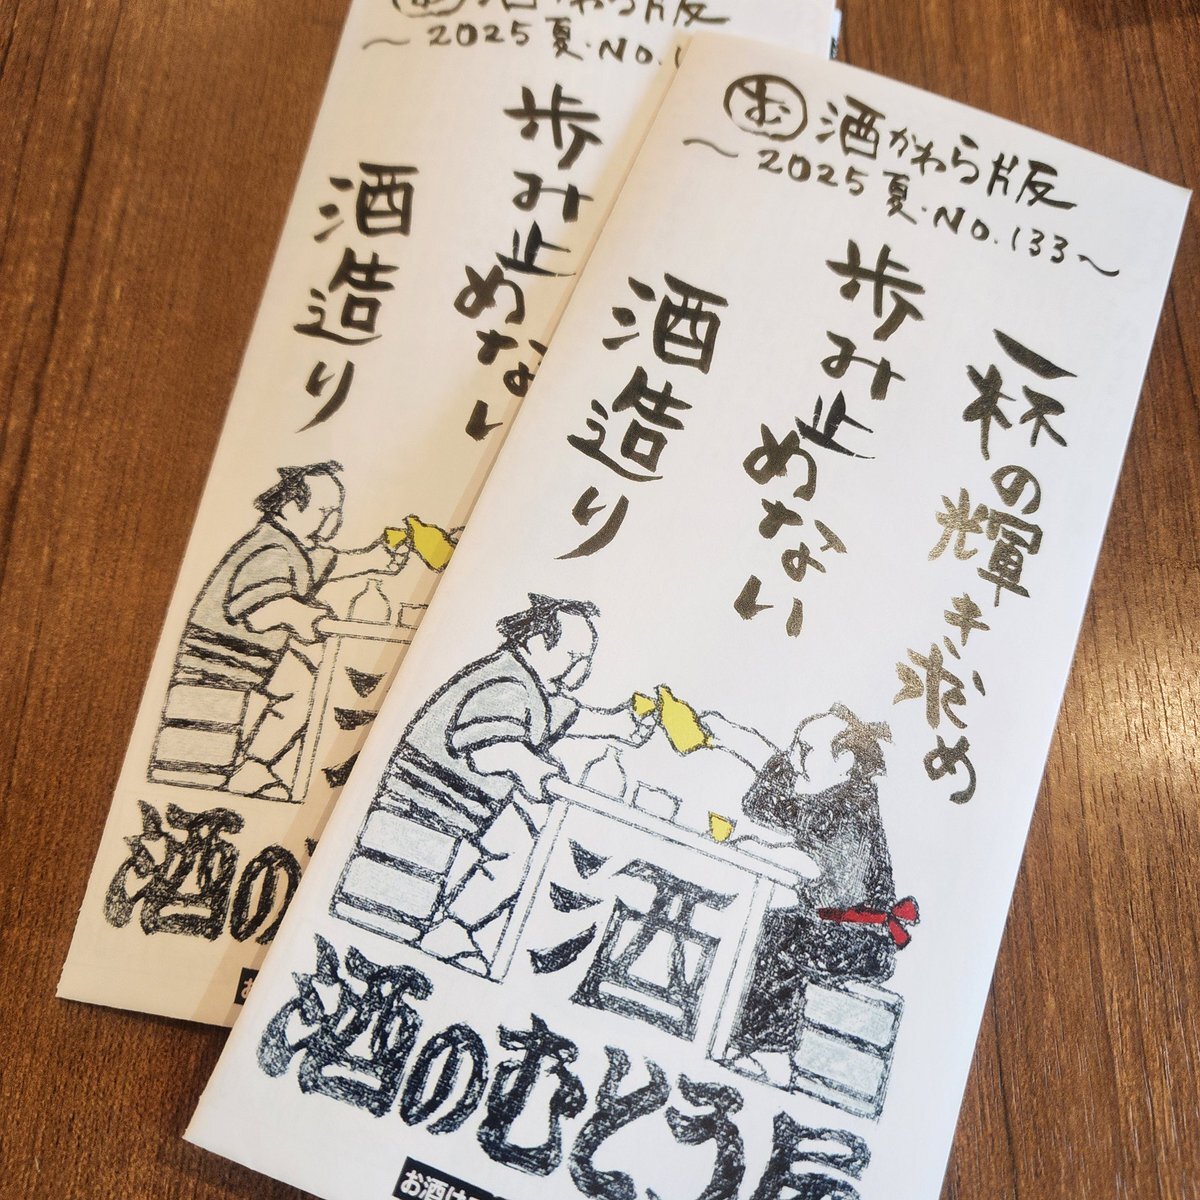 む 酒かわら版
～2025夏・No.133～
一杯の輝き求め
歩み止めない
酒造り
酒
酒のむとう屋
お酒は
酒かわら版
～2025夏・No.1
歩み止めない
酒造り
酒の
お